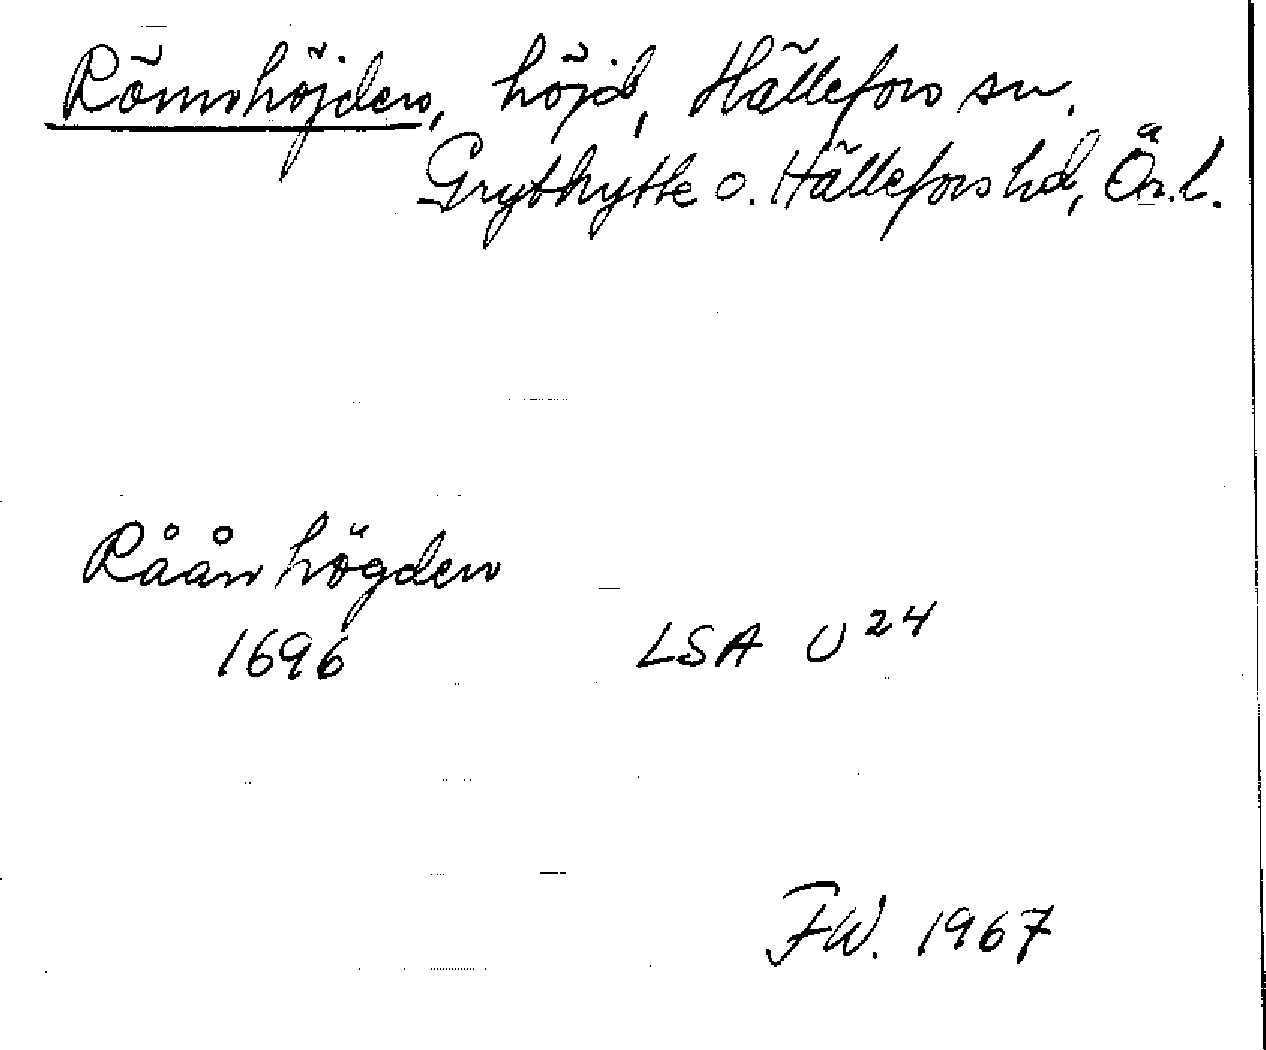 Römshöjden, höjd, Hällefors sn.
Grythytte o. Hällefors hd, Ör.l.
Råån högden
1696 LSA U 24
FW. 1967